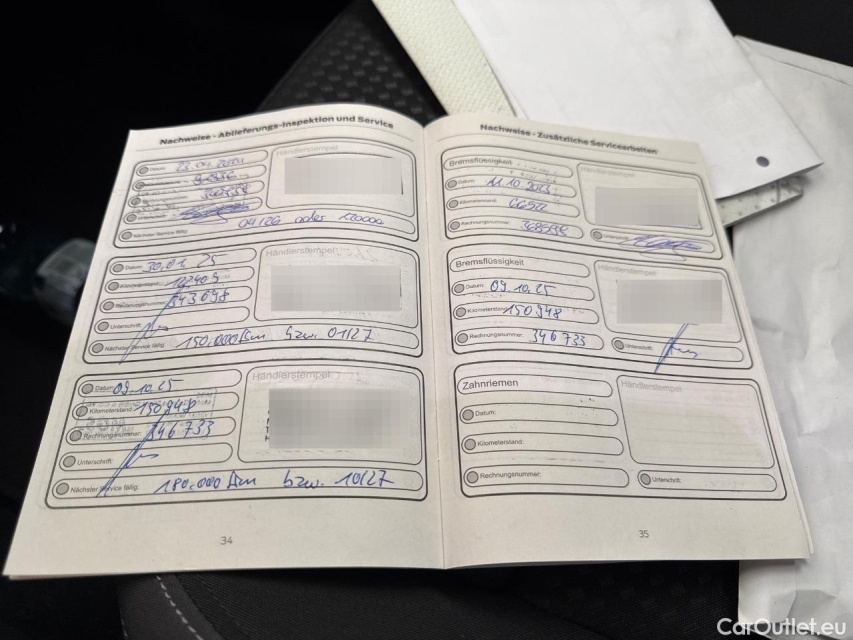 Nachweise - Ablieferungs-Inspektion und Service
Datum: 23.04.2024
Händlerstempel
Nächster Service fällig: 04/26 oder 120000
Datum: 30.01.25
Händlerstempel
Kilometerstand:
Rechnungsnummer: 343098
Unterschrift:
Nächster Service fällig: 150.000 km bzw. 01/27
Datum: 09.10.25
Händlerstempel
Kilometerstand: 150948
Rechnungsnummer: 346733
Unterschrift:
Nächster Service fällig: 180.000 km bzw. 10/27
34
Nachweise - Zusätzliche Servicearbeiten
Bremsflüssigkeit
Händlerstempel
Datum: 11.10.2023
Kilometerstand: 66522
Rechnungsnummer:
Unterschrift:
Bremsflüssigkeit
Händlerstempel
Datum: 09.10.25
Kilometerstand: 150948
Rechnungsnummer: 346733
Unterschrift:
Zahnriemen
Händlerstempel
Datum:
Kilometerstand:
Rechnungsnummer:
Unterschrift:
35
CarOutlet.eu